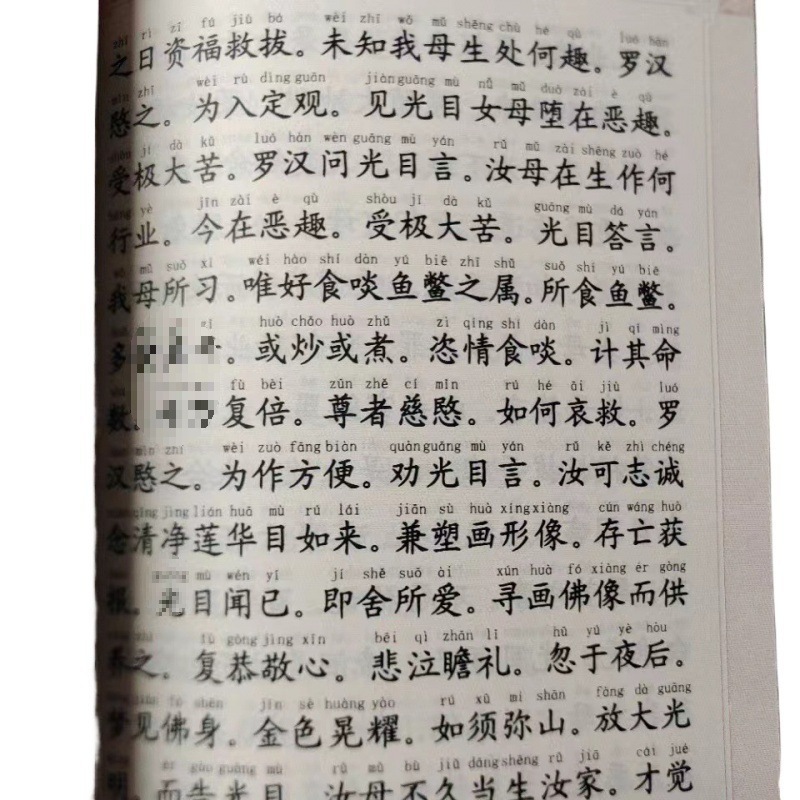 zhī rì zī fú jiù bá wèi zhī wǒ mǔ shēng chù hé qù luó hàn
之日资福救拔。未知我母生处何趣。罗汉
mǐn zhī wèi rù dìng guān jiàn guāng mù nǚ mǔ duò zài è qù
愍之。为入定观。见光目女母堕在恶趣。
shòu jí dà kǔ luó hàn wèn guāng mù yán rǔ mǔ zài shēng zuò hé
受极大苦。罗汉问光目言。汝母在生作何
háng yè jīn zài è qù shòu jí dà kǔ guāng mù dá yán
行业。今在恶趣。受极大苦。光目答言。
wǒ mǔ suǒ xí wéi hào shí dàn yú biē zhī shǔ suǒ shí yú biē
我母所习。唯好食啖鱼鳖之属。所食鱼鳖。
zǐ huò chǎo huò zhǔ zì qíng shí dàn jì qí mìng
多 。或炒或煮。恣情食啖。计其命
fù bèi zūn zhě cí mǐn rú hé āi jiù luó
数。 复倍。尊者慈愍。如何哀救。罗
hàn mǐn zhī wèi zuò fāng biàn quàn guāng mù yán rǔ kě zhì chéng
汉愍之。为作方便。劝光目言。汝可志诚
qīng jìng lián huā mù rú lái jiān sù huà xíng xiàng cún wáng huò
念清净莲华目如来。兼塑画形像。存亡获
mù wén yǐ jí shě suǒ ài xún huà fó xiàng ér gòng
报。光目闻已。即舍所爱。寻画佛像而供
zhī fù gōng jìng xīn bēi qì zhān lǐ hū yú yè hòu
养之。复恭敬心。悲泣瞻礼。忽于夜后。
jiàn fó shēn jīn sè huàng yào rú xū mí shān fàng dà guāng
梦见佛身。金色晃耀。如须弥山。放大光
ér gào guāng mù rǔ mǔ bù jiǔ dāng shēng rǔ jiā cái jué
明。而告光目。汝母不久当生汝家。才觉